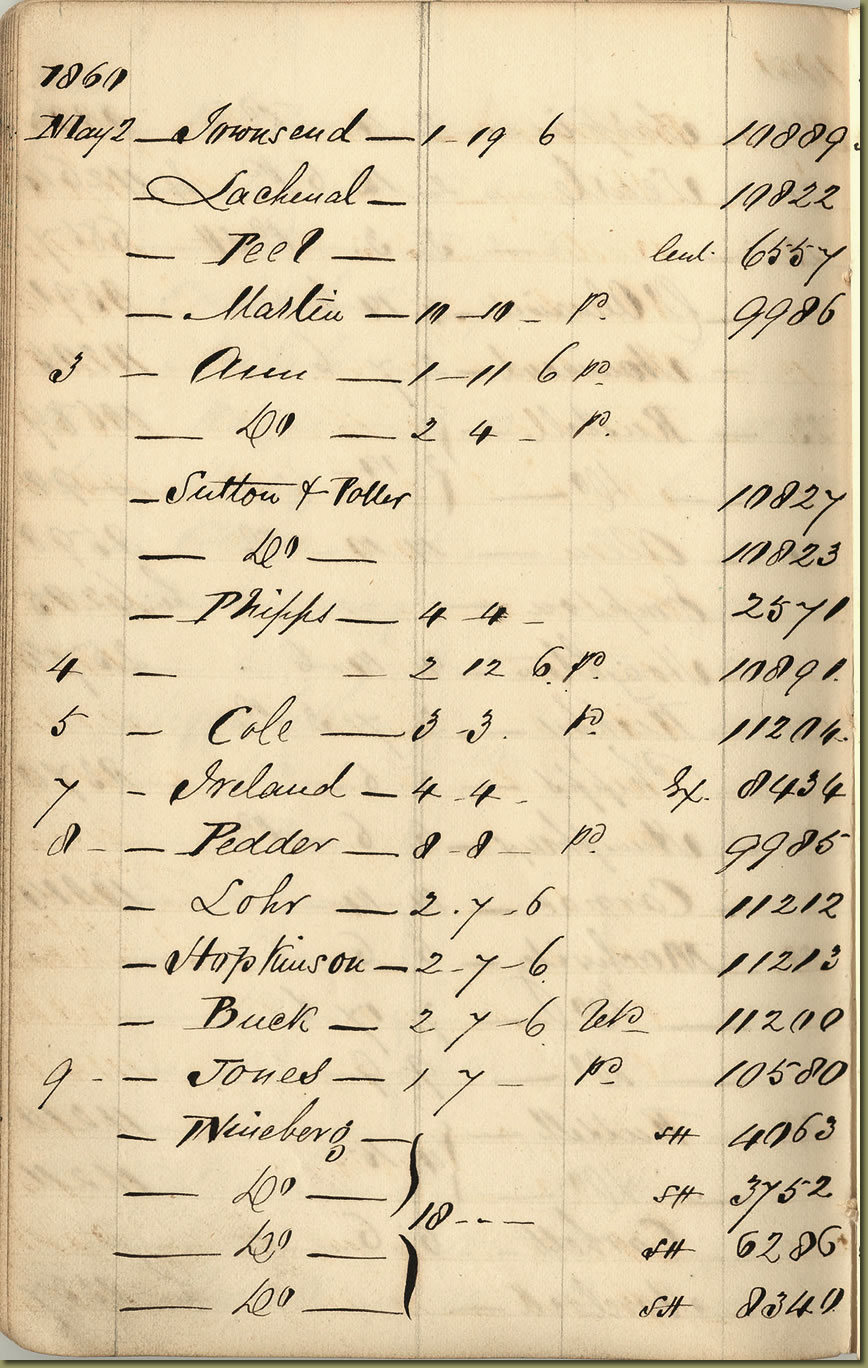 1860
May 2 — Townsend — 1 - 19 6 10889
— Lachenal — 10822
— Peel — lent. 6557
— Martin — 10 - 10 - pd 9986
3 — Ann — 1 - 11 6 pd
— Do — 2 4 - pd.
— Sutton & Potter 10827
— Do — 10823
— Phipps — 4 4 - 2571
4 — — 2 12 6. pd. 10891.
5 — Cole — 3 - 3. pd 11204.
7 - Ireland — 4 - 4 - Ex. 8434
8 - — Pedder — 8 - 8 - pd 9985
— Lohr — 2. 7 - 6 11212
— Hopkinson — 2 - 7 - 6. 11213
— Buck — 2 7 - 6. 11200
9 - — Jones — 1 7 - pd 10580
— Wineberg — SH 4063
— Do — SH 3752
18 - - -
— Do — SH 6286
— Do — SH 8340